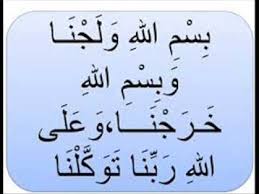 بِسْمِ اللهِ وَلَجْنَــا
وَبِسْمِ اللهِ
خَـرَجْنَــا،وَعَلَى
اللهِ رَبِّنَا تَوَكَّلْنَا